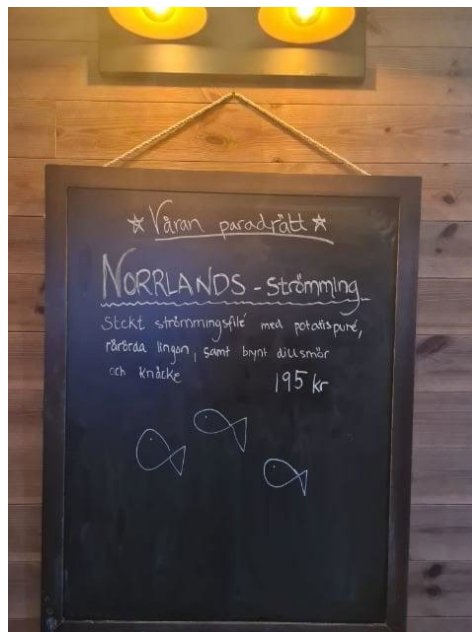 ☆ Våran paradrätt ☆
NORRLANDS - Strömming
Stekt strömmingsfilé med potatispuré,
rårörda lingon, samt brynt dillsmör
och knäcke 195 kr